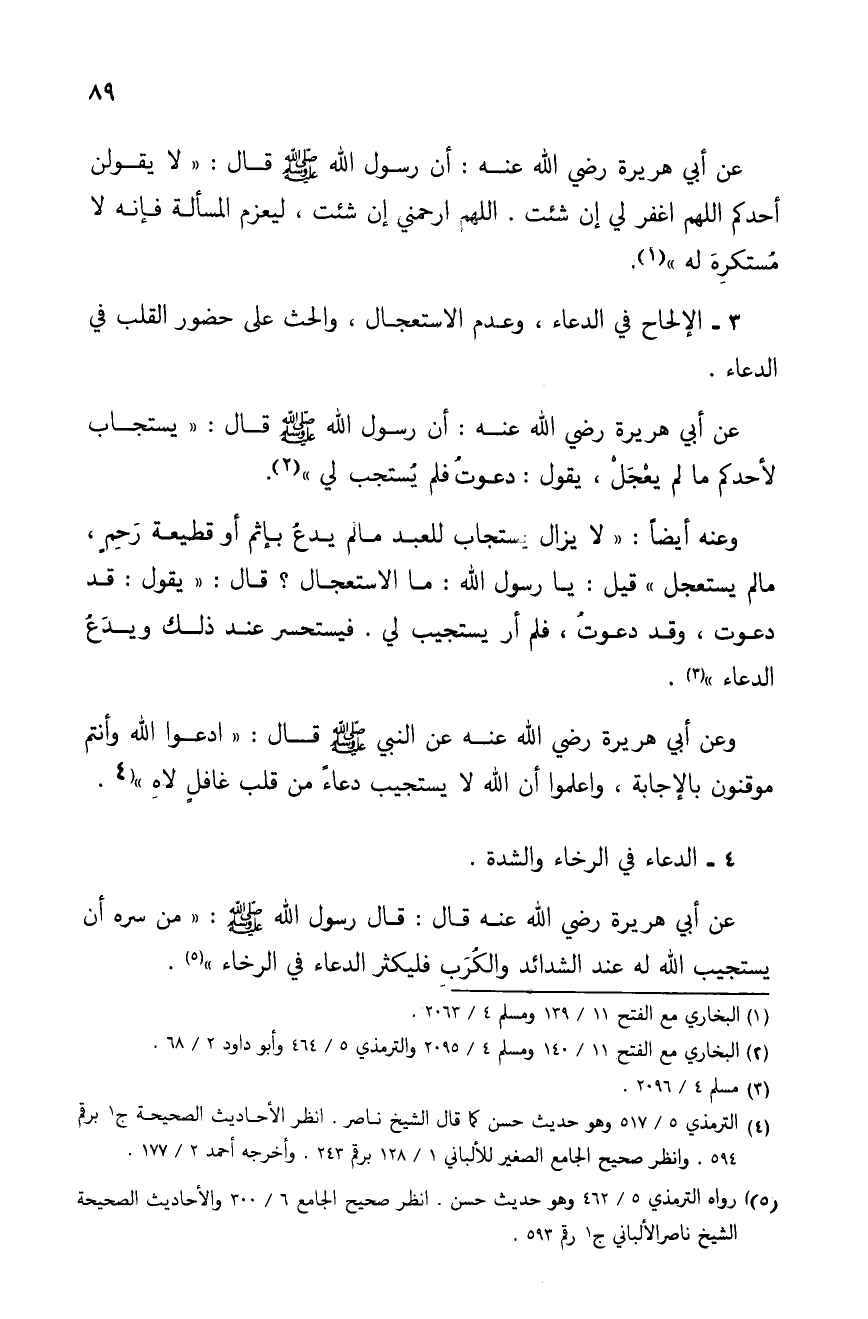 ٨٩
عن أبي هريرة رضي الله عنه : أن رسول الله ﷺ قال : « لا يقولن
أحدكم اللهم اغفر لي إن شئت . اللهم ارحمني إن شئت ، ليعزم المسألة فإنه لا
مُستكرِهَ له »(١).
٣ ـ الإلحاح في الدعاء ، وعدم الاستعجال ، والحث على حضور القلب في
الدعاء .
عن أبي هريرة رضي الله عنه : أن رسول الله ﷺ قال : « يستجاب
لأحدكم ما لم يعْجَلْ ، يقول : دعوتُ فلم يُستجب لي »(٢).
وعنه أيضاً : « لا يزال يستجاب للعبد مالم يدعُ بإثم أو قطيعة رَحِمٍ ،
مالم يستعجل » قيل : يا رسول الله : ما الاستعجال ؟ قال : « يقول : قد
دعوت ، وقد دعوتُ ، فلم أر يستجيب لي . فيستحسر عند ذلك ويدَعُ
الدعاء »(٣) .
وعن أبي هريرة رضي الله عنه عن النبي ﷺ قال : « ادعوا الله وأنتم
موقنون بالإجابة ، واعلموا أن الله لا يستجيب دعاءً من قلب غافلٍ لاهٍ »(٤ .
٤ ـ الدعاء في الرخاء والشدة .
عن أبي هريرة رضي الله عنه قال : قال رسول الله ﷺ : « من سره أن
يستجيب الله له عند الشدائد والكُرَبِ فليكثر الدعاء في الرخاء »(٥) .
(١) البخاري مع الفتح ١١ / ١٣٩ ومسلم ٤ / ٢٠٦٣ .
(٢) البخاري مع الفتح ١١ / ١٤٠ ومسلم ٤ / ٢٠٩٥ والترمذي ٥ / ٤٦٤ وأبو داود ٢ / ٦٨ .
(٣) مسلم ٤ / ٢٠٩٦ .
(٤) الترمذي ٥ / ٥١٧ وهو حديث حسن كما قال الشيخ ناصر . انظر الأحاديث الصحيحة ج١ برقم
٥٩٤ . وانظر صحيح الجامع الصغير للألباني ١ / ١٢٨ برقم ٢٤٣ . وأخرجه أحمد ٢ / ١٧٧ .
(٥) رواه الترمذي ٥ / ٤٦٢ وهو حديث حسن . انظر صحيح الجامع ٦ / ٣٠٠ والأحاديث الصحيحة
الشيخ ناصرالألباني ج١ رقم ٥٩٣ .